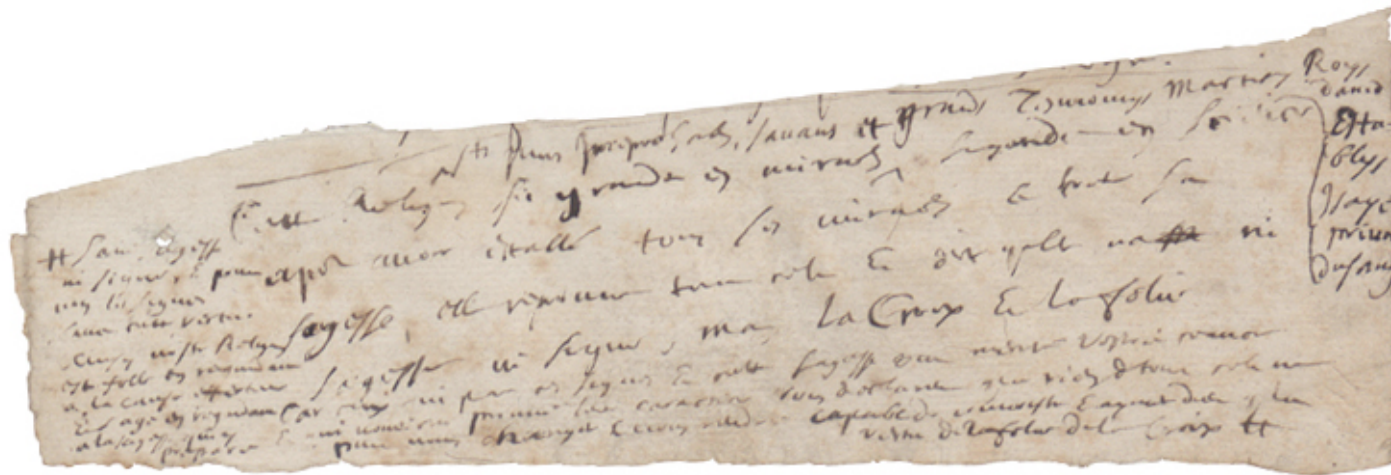 Sts purs irreprochables, savans et grands Tesmoins, Martirs Roys
David
Esta
blys
Isaye
prince
du sang
Cette Religion si grande en miracles si grande en science
apres avoir estallé tous ses miracles et toute sa
sagesse, elle reprouve tout cela et dit qu'elle na ni
sagesse ni signe, mais la Croix et la folie
Car ceux qui par ces signes et cette sagesse ont merité vostre creance
et qui vous ont prouvé leur caractere vous declarent que rien de tout cela ne
peut nous changer et nous rendre capables de connoistre et aymer dieu que la
vertu de la folie de la Croix #
# sans sagesse
ni signe, et point
non les signes
sans cette vertu
Ainsy nostre Religion
est folle en regardant
a la cause effective
et sage en regardant
a la sagesse qui y
prepare